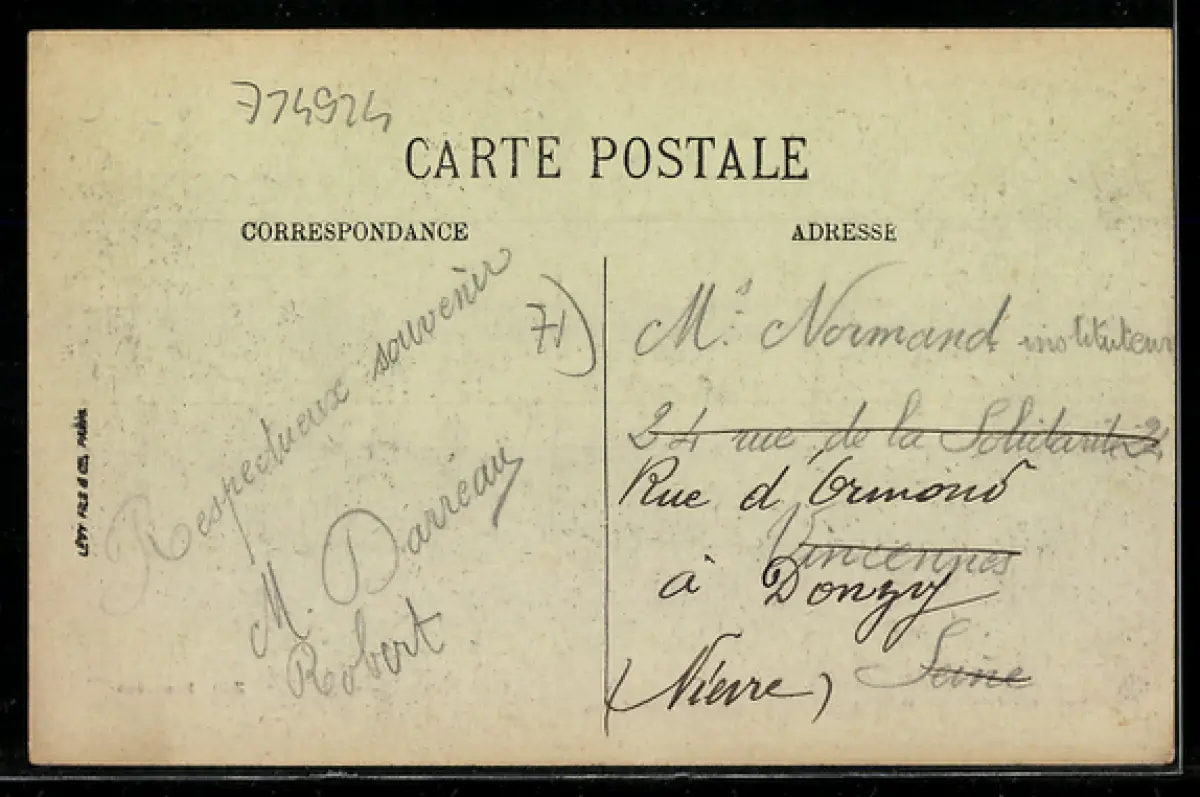 774924
CARTE POSTALE
CORRESPONDANCE
ADRESSE
Respectueux souvenir
M. Darreau
Robert
71)
LÉVY FILS & CIE, PARIS
Mʳ. Normand instituteur
24 rue de la Solidarité 24
Rue d'Ormond
Vincennes
à Donzy
(Nièvre)
Seine